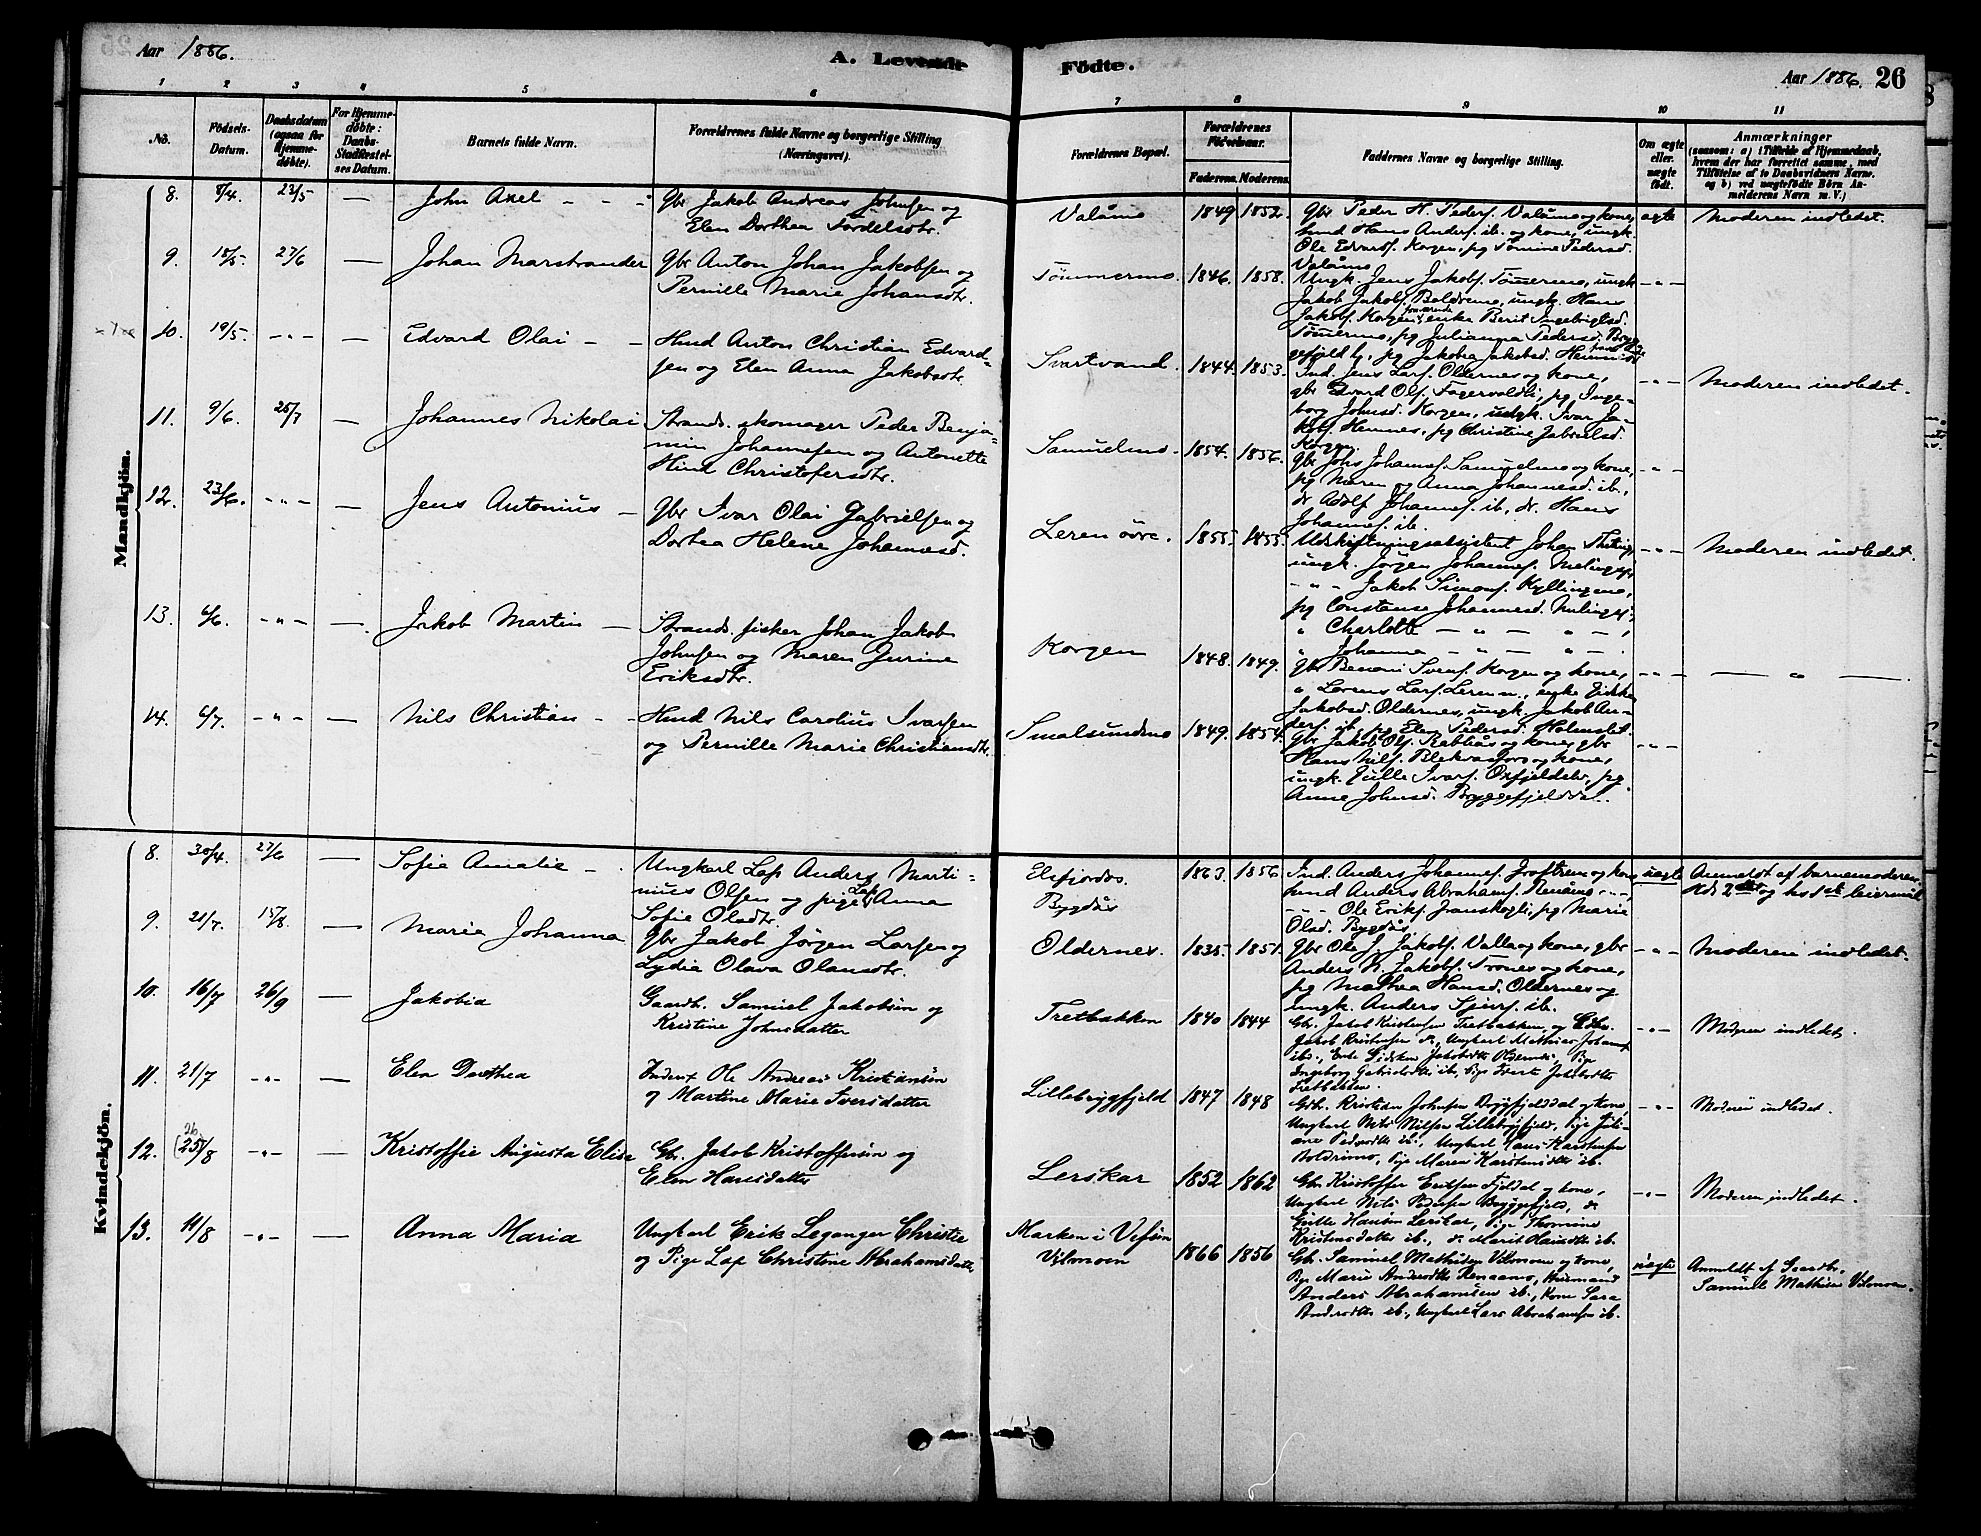 Aar 1886.
A. Levende Födte.
Aar 1886. 26
1 2 3 4 5 6 7 8 9 10 11
No.
Födsels-Datum.
Daabsdatum (ogsaa for Hjemme-døbte).
For Hjemme-døbte: Daabs-Stadfæstel-ses Datum.
Barnets fulde Navn.
Forældrenes fulde Navne og borgerlige Stilling (Næringsvei).
Forældrenes Bopæl.
Forældrenes Födselsaar.
Faderens. Moderens.
Faddernes Navne og borgerlige Stilling.
Om ægte eller uægte født.
Anmærkninger (saasom: a) i Tilfælde af Hjemmedaab, hvem der har forrettet samme, med Tilföielse af to Daabsvidners Navne. og b) ved uægtefödte Börn An-melderens Navn m. V.)
Mandkjön.
8. 8/4. 23/5 — John Axel - - -
Gbr Jakob Andreas Johnsen og
Elen Dorthea Tordelsdtr.
Valåmo 1849 1852.
Gbr Peder H. Peders. Valåmo og kone,
hmd Hans Anders. ib. og kone, ungk.
Ole Edvards. Korgen, pg Tomine Pedersd.
Valåmo
ægte Moderen indledet.
9. 18/5. 27/6 — Johan Marstrander
Gbr Anton Johan Jakobsen og
Pernille Marie Johansdtr.
Tömmermo. 1846. 1858.
Ungk. Jens Jakobs. Tömermo, ungk
Jakob Jakobs. Boldremo, ungk. Hans
Jakobs. Korgen, enke Berit Ingebrigtsd.
Tömermo, pg Julianna Pedersd. Bryg-
gefjeld, pg Jakobea Jakobsd.
- " -
10. 19/5. - " - — Edvard Olai - -
Hmd Anton Christian Edvard-
sen og Elen Anna Jakobsdtr.
Svartvand. 1844. 1853.
Ind. Jens Lars. Oldernes og kone,
gbr Edvard Ols. Fagervoldli, pg Inge-
borg Johnsd. Korgen, ungk. Ivar Ja-
kobs. Hemnes, pg Christine Gabrielsd.
Korgen.
- " - Moderen indledet.
11. 9/6. 25/7 — Johannes Nikolai
Strands. skomager Peder Benja-
min Johannesen og Antonette
Hind Christofersdtr.
Samuelmo. 1854. 1856.
Gbr Johs Johannes. Samuelmo og kone,
pg Maren og Anna Johannesd. ib.,
dr. Adolf Johannes. ib, dr. Hans
Johannes. ib.
- " -
12. 23/6. - " - — Jens Antonius -
Gbr Ivar Olai Gabrielsen og
Dorthea Helene Johannesd.
Leren övre. 1855. 1855.
Udskiftningsassistent Johan
ungk. Jörgen Johannes.
- " - Jakob Simons. Kyllingmo,
pg Constanse Johannesd.
" Charlotte - " - " -,
" Johanna - " - " -.
- " - Moderen indledet.
13. 6/6. - " - — Jakob Martin -
Strands. fisker Johan Jakob
Johnsen og Maren Jurine
Eriksdtr.
Korgen 1848. 1849.
Gbr Benoni Korgen og kone,
" Lorens Lars. Leren n., enke
Jakobsd. Oldernes, ungk. Jakob An-
ders. ib, pg Elen Pedersd. Holmslet.
- " - — " —
14. 6/7. - " - — Nils Christian - -
Hmd Nils Carolius Ivarsen
og Pernille Marie Christiansdtr.
Smalsundmo 1849. 1854.
Gbr Jakob Ols. Rabliås og kone, gbr
Hans Nils. Blekvanfors og kone,
ungk. Ivars. Oxfjeldelv, pg
Anne Johnsd. Bryggefjelddal.
- " -
Kvindekjön.
8. 30/4. 27/6 — Sofie Amalie - .
Ungkarl Lap Anders Marti-
nius Olsen og pige Lap Anna
Sofie Olsdtr.
Elsfjorden.
Bygdås
1863. 1856
Ind. Anders Johannes. og kone
hmd Anders Abrahams. Renåmo - " -,
- " - Ole Eriks. Granskogli, pg Marie
Olsd. Bygdås
uægte Anmeldt af barnemoderen.
9. 21/7. 15/8. — Maria Johanna
Gbr Jakob Jörgen Larsen og
Lydia Olava Olausdtr.
Oldernes. 1835. 1851.
Gbr Ole J. Jakobs. Valla og kone, gbr
Anders K. Jakobs. Trones og kone,
pg Mathea Hansd. Oldernes og
ungk. Anders ib.
- " - Moderen indledet.
10. 16/7 26/9 — Jakobia
Gaardb. Samuel Jakobsön og
Kristine Johnsdatter
Tretbakken 1840 1844
Gbr. Jakob Kristensen Tretbakken, og
Jakob Kristensen do, Ungkarl Mathias Johans
ibd., Enke Sidsken Jakobsdtr Oldernes, Pige
Ingeborg Gabrielsdtr ib, Pige Jakobsdtr
Tretbakken.
- " - Moderen indledet.
11. 21/7 - " - — Elen Dorthea
Inderst Ole Andreas Kristiansön
og Martine Marie Iversdatter
Lillebrygfjeld 1847 1848
Gdb. Kristian Johnsen Brygfjelddal og kone,
Ungkarl Nils Nilsen Lillebrygfjeld, Pige Juli-
ane Pedersdtr ib., Ungkarl Hans Karstensen
Boldrimo, Pige Maren Karstensdtr ib.
- " - Moderen indledet.
12. 26 (25/8 - " - — Kristoffie Augusta Elise
Gb. Jakob Kristoffersön og
Elen Hansdatter
Lerskar 1852 1862
Gb. Kristoffer Eriksen Fjeldal og kone,
Ungkarl Nils Pedersen Bryggfjeld, do
Hansen Lerskar, Pige Thomine
Kristensdatter ib., do Marit Hansdtr ib.
- " - Moderen indledet.
13. 19/8 - " - — Anna Maria
Ungkarl Erik Leganger Christie
og Pige Lap Christine Abrahamsdatter
Marken i Vefsen
Vilmoen
1866 1856
Gb. Samuel Mathisen Vilmoen og kone,
Pige Marie Andersdtr Renaamo, Husmand
Anders Abrahamsen ib., Kone Sara
Andersdtr ib., Ungkarl Lars Abrahamsen ib.
uægte Anmeldt af Gaardbr.
Samuel Mathisen Vilmoen.